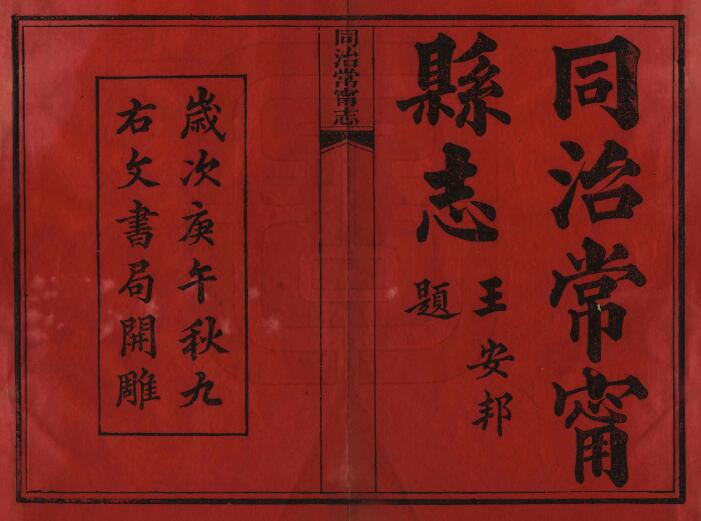 同治常甯
縣志
王安邦
題
同治常甯志
歲次庚午秋九
右文書局開雕